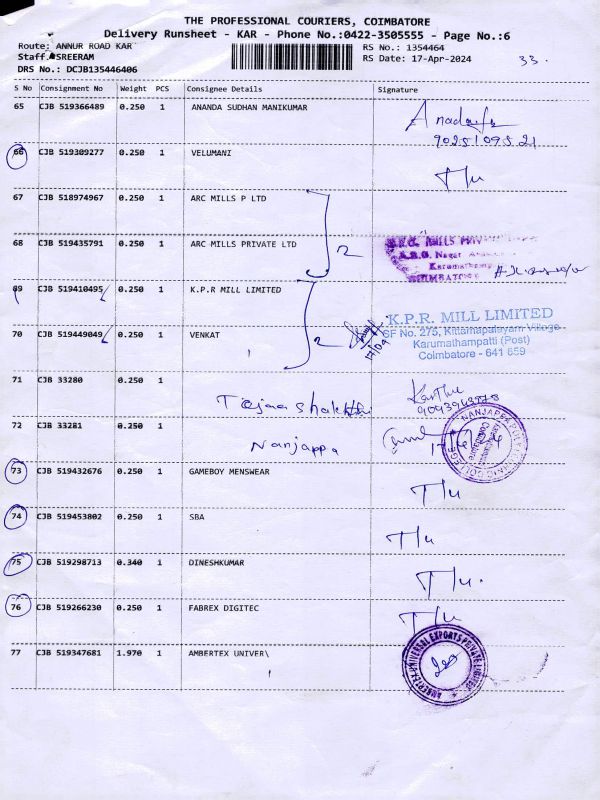 THE PROFESSIONAL COURIERS, COIMBATORE
Delivery Runsheet - KAR - Phone No.:0422-3505555 - Page No.:6
Route: ANNUR ROAD KAR RS No.: 1354464
Staff: SREERAM RS Date: 17-Apr-2024 33.
DRS No.: DCJB135446406
S No Consignment No Weight PCS Consignee Details Signature
65 CJB 519366489 0.250 1 ANANDA SUDHAN MANIKUMAR
66 CJB 519309277 0.250 1 VELUMANI T/u
67 CJB 518974967 0.250 1 ARC MILLS P LTD
2
68 CJB 519435791 0.250 1 ARC MILLS PRIVATE LTD
A.R.C. MILLS
A.R.C. Nagar
Karumathampatty
COIMBATORE
69 CJB 519410495 0.250 1 K.P.R MILL LIMITED
2
K.P.R. MILL LIMITED
SF No. 275, Kittampalayam Village
Karumathampatti (Post)
Coimbatore - 641 659
70 CJB 519449049 0.250 1 VENKAT
17/04
71 CJB 33280 0.250 1 Tejaa shakthi
72 CJB 33281 0.250 1 Nanjappa
NANJAPPA POLYTECHNIC COLLEGE
73 CJB 519432676 0.250 1 GAMEBOY MENSWEAR T/u
74 CJB 519453802 0.250 1 SBA T/u
75 CJB 519298713 0.340 1 DINESHKUMAR T/u.
76 CJB 519266230 0.250 1 FABREX DIGITEC T/u
77 CJB 519347681 1.970 1 AMBERTEX UNIVER\
AMBERTEX UNIVERSAL EXPORTS PRIVATE LIMITED